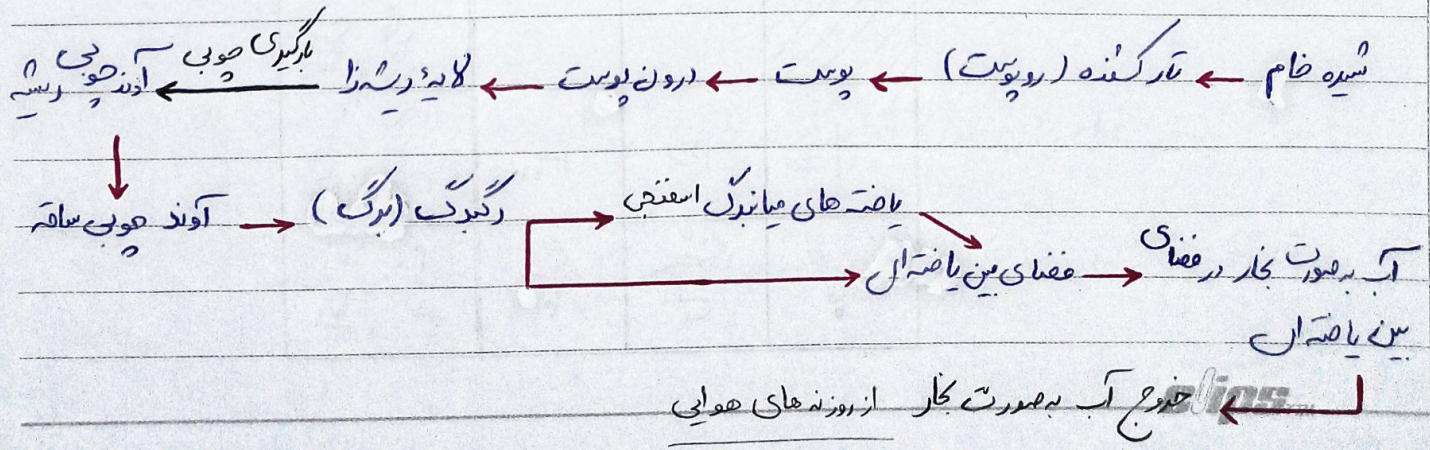 شیره خام ← تار کشنده (روپوست) ← پوست ← درون پوست ← لایهٔ ریشه‌زا ← بارگیری چوبی آوند چوبی ریشه
↓
آوند چوبی ساقه → رگبرگ (برگ) → یاخته های میانبرگ اسفنجی
→ فضای بین یاخته ای → آب به صورت بخار در فضای
بین یاخته ای
← خروج آب به صورت بخار از روزنه های هوایی